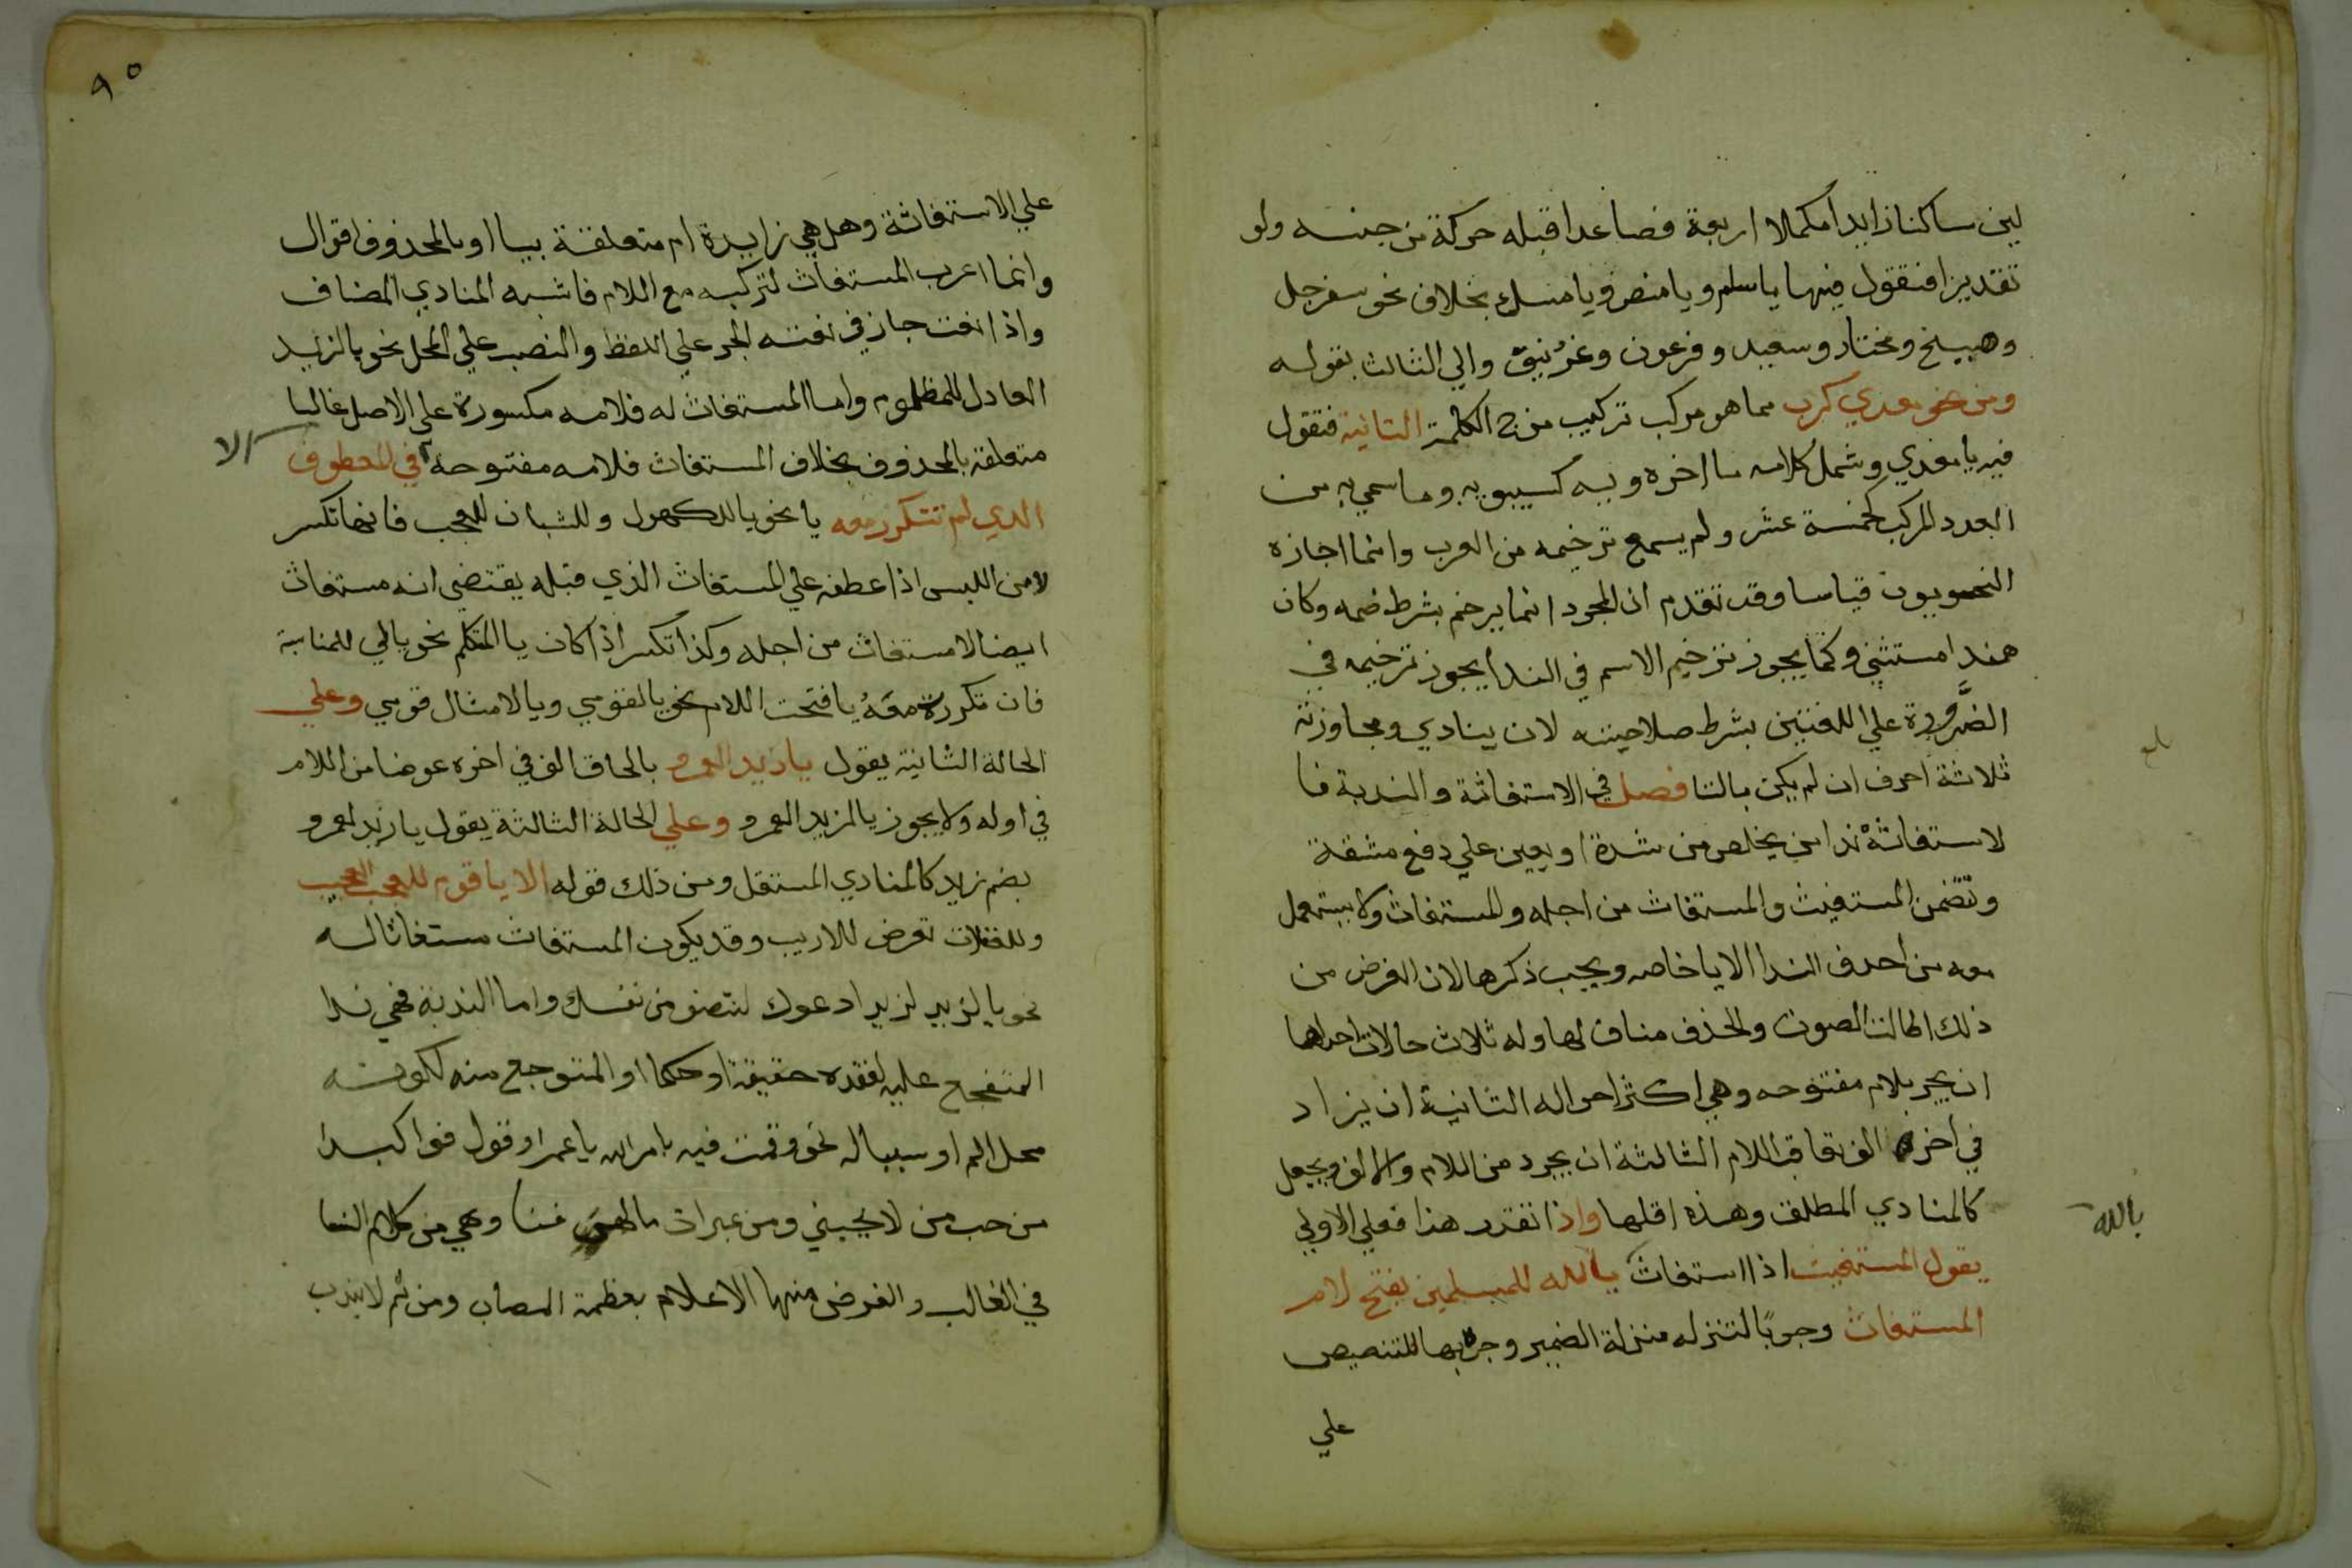 لين ساكنا زايدا مكملا اربعة فصاعدا قبله حركة من جنسه ولو
تقديرا فتقول فيها ياسلم ويا منص ويا منسك بخلاف نحو سفرجل
وهبيخ ومختار وسعيد وفرعون وغرنيق والي الثالث بقوله
ومن نحو معدي كرب مما هو مركب تركيب مزج الكلمة الثانية فتقول
فيه يا معدي وشمل كلامه ما اخره ويه كسيبويه وما سمي به من
العدد المركب كخمسة عشر ولم يسمع ترخيمه من العرب وانما اجازه
النحويون قياسا وقد تقدم ان المجرد انما يرخم بشرط ضمه وكان
هذا مستثني وكما يجوز ترخيم الاسم في الندا يجوز ترخيمه في
الضرورة علي اللغتين بشرط صلاحيته لان ينادي ومجاوزته
ثلاثة احرف ان لم يكن بالتا فصل في الاستغاثة والندبة فا
لاستغاثة ندا من يخلص من شدة او يعين علي دفع مشقة
وتتضمن المستغيث والمستغاث من اجله والمستغاث ولا يستعمل
معه من احرف الندا الا يا خاصه ويجب ذكرها لان الغرض من
ذلك اطالت الصوت والحذف مناف لها وله ثلاث حالات احداها
ان يجر بلام مفتوحه وهي اكثر احواله الثانية ان يزاد
في اخره الف تعاقب اللام الثالثة ان يجرد من اللام والالف ويجعل
كالمنادي المطلق وهذه اقلها واذا تقدر هذا فعلي الاولي
يقول المستغيث اذا استغاث يا لله للمسلمين بفتح لام
المستغاث وجوبا لتنزله منزلة الضمير وجر بها للتنصيص
علي
بلغ
يالله
٩٥
علي الاستغاثة وهل هي زايدة ام متعلقة بيا او بالمحذوف اقوال
وانما اعرب المستغاث لتركبه مع اللام فاشبه المنادي المضاف
واذا نعت جاز في نعته الجر علي اللفظ والنصب علي المحل نحو يالزيد
العادل للمظلوم واما المستغاث له فلامه مكسورة علي الاصل غالبا
متعلقة بالمحذوف بخلاف المستغاث فلامه مفتوحة في المعطوف
الا
الذي لم تتكرر معه يا نحو يا للكهول وللشبان للعجب فانها تكسر
لامن اللبس اذا عطفه علي المستغاث الذي قبله يقتضي انه مستغاث
ايضا لا مستغاث من اجله وكذا تكسر اذا كان يا المتكلم نحو يالي للمناسبة
فان تكررة معه يا فتحت اللام نحو يا لقومي ويا لامثال قومي وعلي
الحالة الثانية يقول يا زيدا لعمرو بالحاق الف في اخره عوضا من اللام
في اوله ولا يجوز يا لزيدا لعمرو وعلي الحالة الثالثة يقول يا زيد لعمرو
بضم زيد كالمنادي المستقل ومن ذلك قوله الا يا قوم للعجب العجيب
وللغفلات تعرض للاريب وقد يكون المستغاث مستغاثا له
نحو يا لزيد لزيد ادعوك لتنصف من نفسك واما الندبة فهي ندا
المتفجع عليه لفقده حقيقة او حكما او المتوجع منه لكونه
محل الم او سببا له نحو وقمت فيه بامر الله يا عمرا وقول فوا كبدا
من حب من لا يحبني ومن عبرات مالهن فنا وهي من كلام النسا
في الغالب والغرض منها الاعلام بعظمة المصاب ومن ثم لا يندب